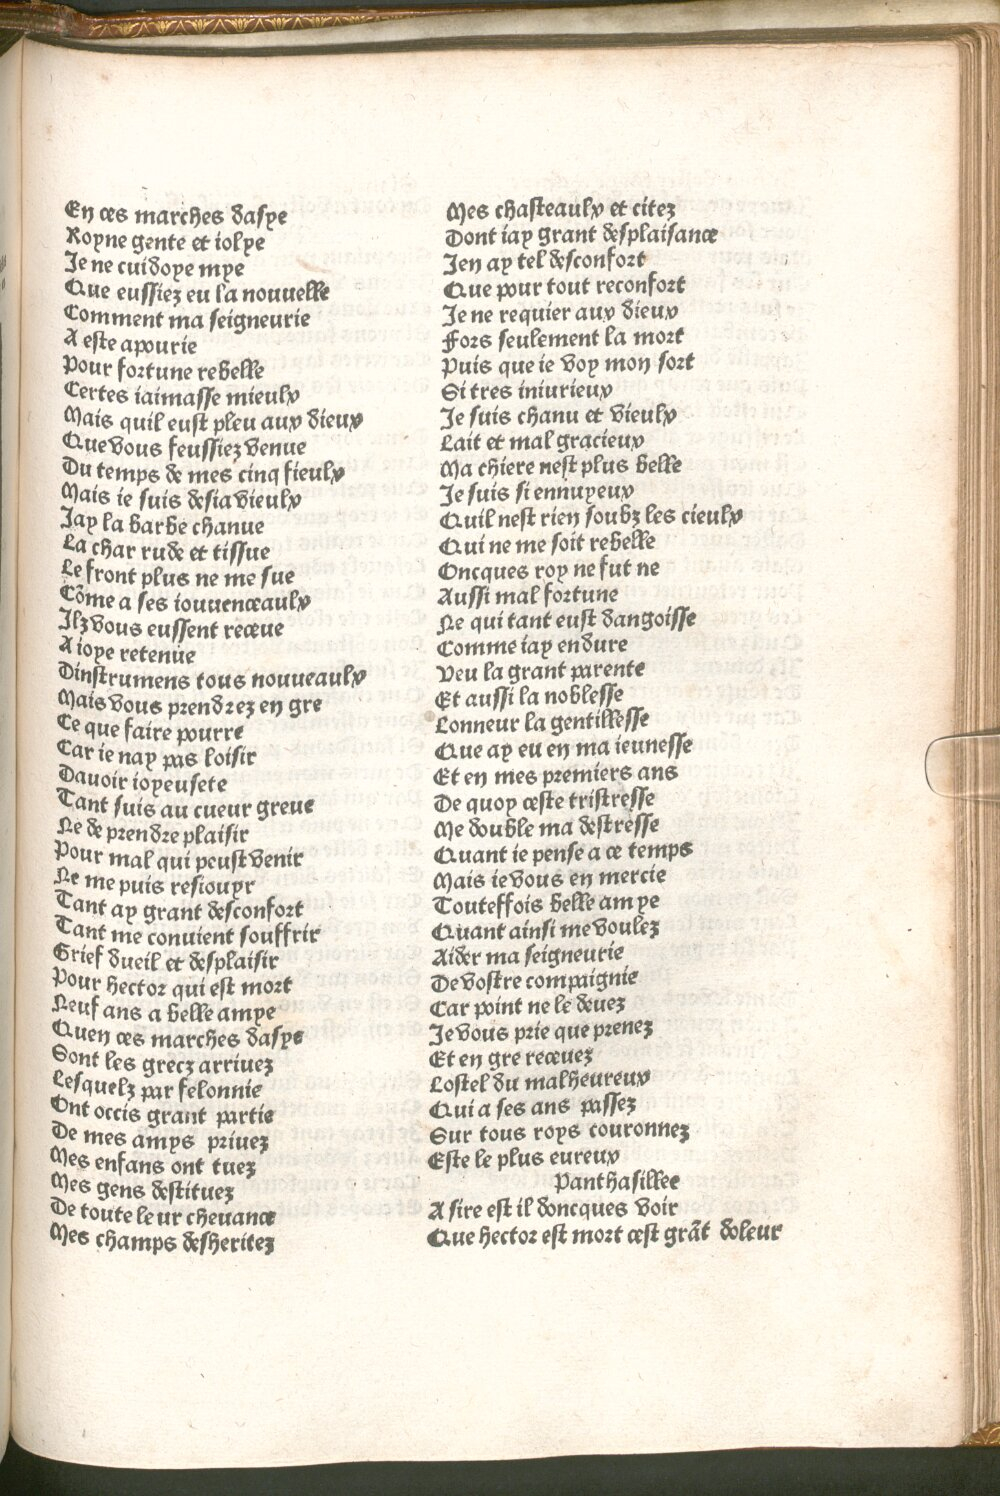 En ces marches dasye
Royne gente et iolye
Je ne cuidoye mye
Que eussiez eu la nouuelle
Comment ma seigneurie
A este apourie
Pour fortune rebelle
Certes iaimasse mieulx
Mais quil eust pleu aux dieux
Que vous feussiez venue
Du temps de mes cinq fieulx
Mais ie suis desia vieulx
Jay la barbe chanue
La char rude et tissue
Le front plus ne me sue
Cõme a ses iouuenceaulx
Ilz vous eussent receue
A ioye retenue
Dinstrumens tous nouueaulx
Mais vous prendrez en gre
Ce que faire pourre
Car ie nay pas loisir
Dauoir ioyeusete
Tant suis au cueur greue
Ne de prendre plaisir
Pour mal qui peust venir
Ne me puis resiouyr
Tant ay grant desconfort
Tant me conuient souffrir
Grief dueil et desplaisir
Pour hector qui est mort
Neuf ans a belle amye
Quen ces marches dasye
Sont les grecz arriuez
Lesquelz par felonnie
Ont occis grant partie
De mes amys priuez
Mes enfans ont tuez
Mes gens destituez
De toute leur cheuance
Mes champs desheritez
Mes chasteaulx et citez
Dont iay grant desplaisance
Jen ay tel desconfort
Que pour tout reconfort
Je ne requier aux dieux
Fors seulement la mort
Puis que ie voy mon sort
Si tres iniurieux
Je suis chanu et vieulx
Lait et mal gracieux
Ma chiere nest plus belle
Je suis si ennuyeux
Quil nest rien soubz les cieulx
Qui ne me soit rebelle
Oncques roy ne fut ne
Aussi mal fortune
Ne qui tant eust dangoisse
Comme iay endure
Veu la grant parente
Et aussi la noblesse
Lonneur la gentillesse
Que ay eu en ma ieunesse
Et en mes premiers ans
De quoy ceste tristresse
Me double ma destresse
Quant ie pense a ce temps
Mais ie vous en mercie
Touteffois belle amye
Quant ainsi me voulez
Aider ma seigneurie
De vostre compaignie
Car point ne le deuez
Je vous prie que prenez
Et en gre receuez
Lostel du malheureux
Qui a ses ans passez
Sur tous roys couronnez
Este le plus eureux
Panthasillee
A sire est il doncques voir
Que hector est mort cest grãt doleur